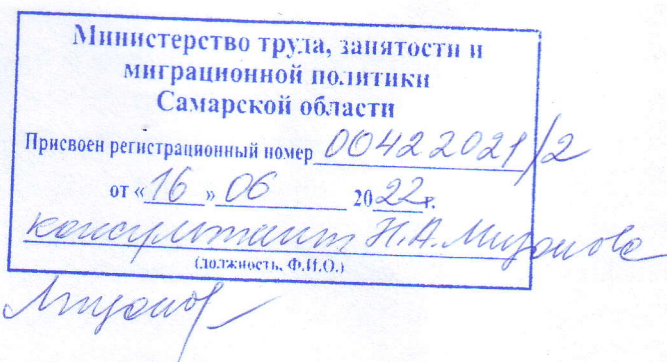 Министерство труда, занятости и
миграционной политики
Самарской области
Присвоен регистрационный номер 00422021/2
от «16» 06 2022г.
консультант Н.А. Мизонова
(должность, Ф.И.О.)